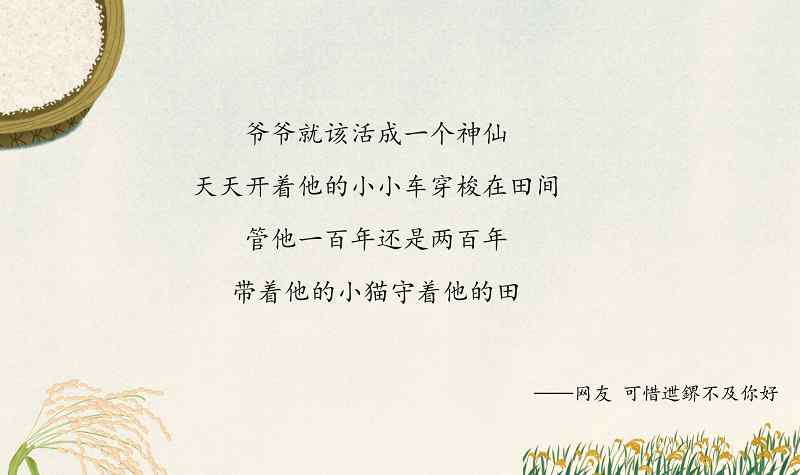 爷爷就该活成一个神仙
天天开着他的小小车穿梭在田间
管他一百年还是两百年
带着他的小猫守着他的田
——网友 可惜迣鎅不及你好